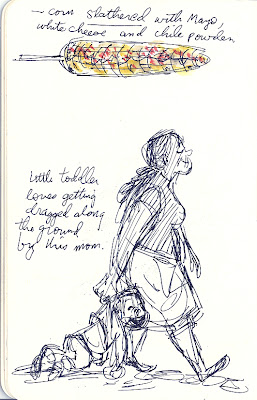 ~ corn slathered with Mayo,
white cheese and chile powder
Little toddler
loves getting
dragged along
the ground
by his mom.